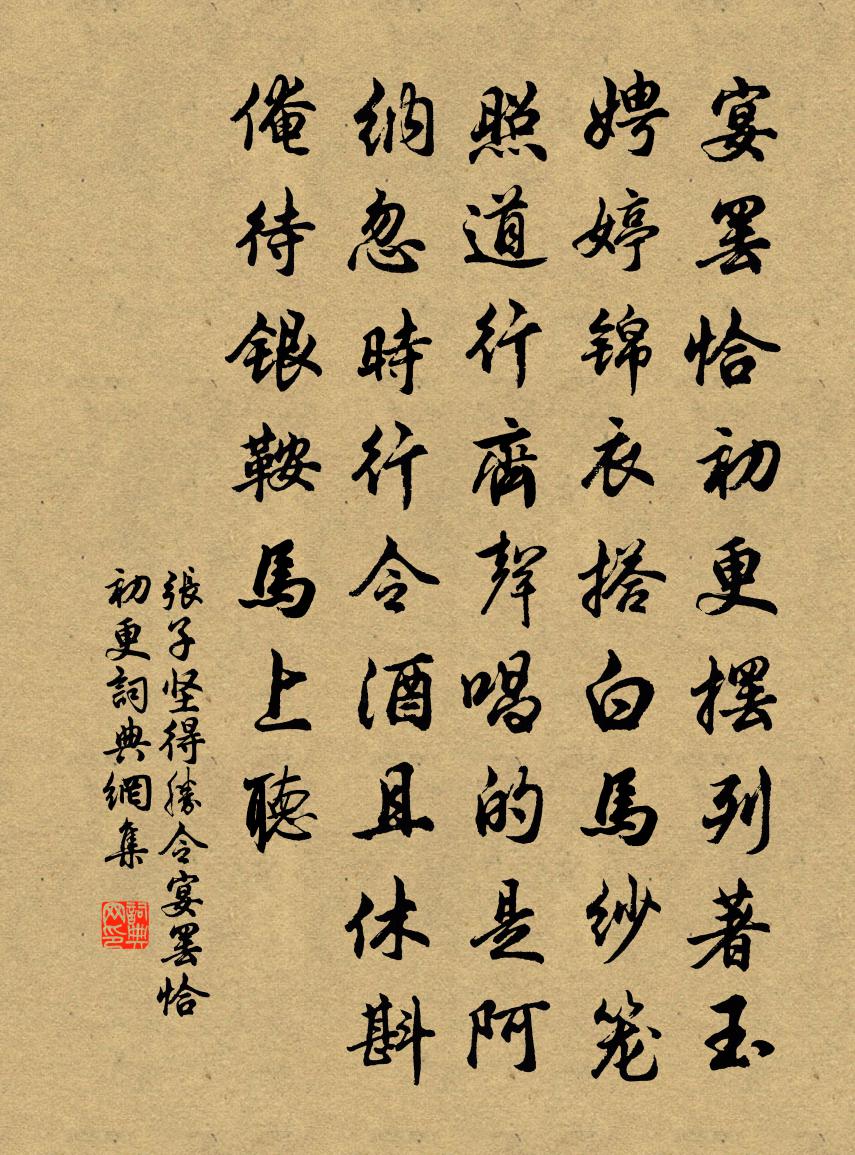 宴罢恰初更摆列著玉
娉婷锦衣搭白馬纱笼
照道行齊聲唱的是阿
纳忽時行令酒且休斟
俺待銀鞍馬上聽
張子坚得勝令宴罢恰
初更詞典網集
詞典网印